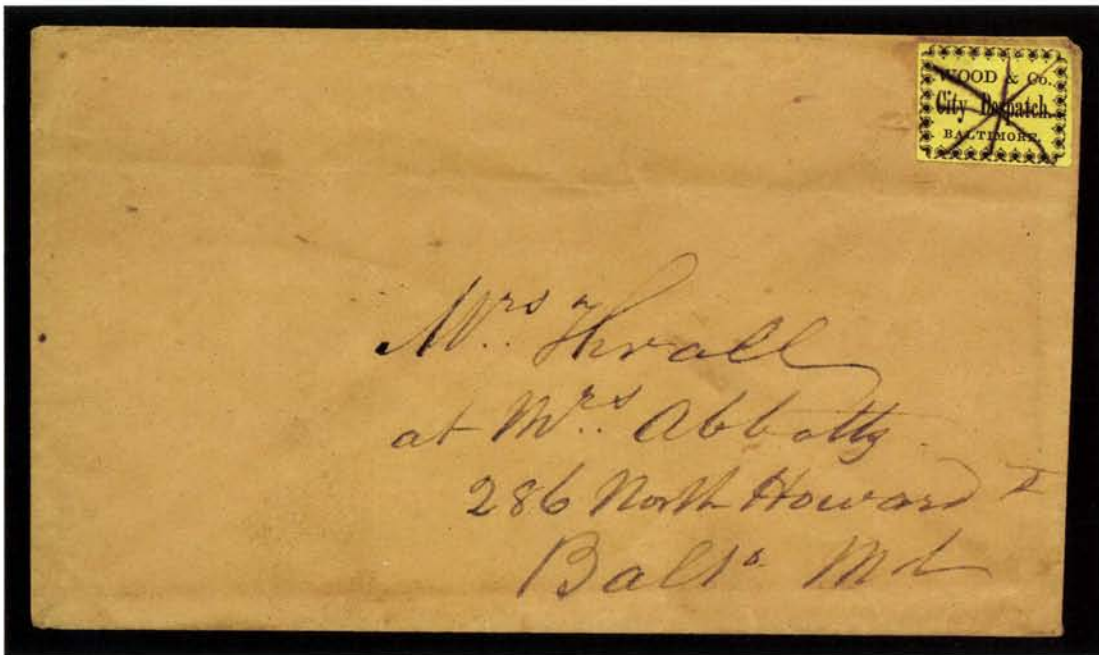 WOOD & Co.
City Despatch.
BALTIMORE.
Mrs. Thrall
at Mrs. Abbotts
286 North Howard St
Balto. Md